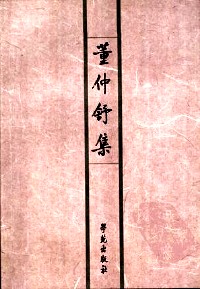 董仲舒集
學苑出版社